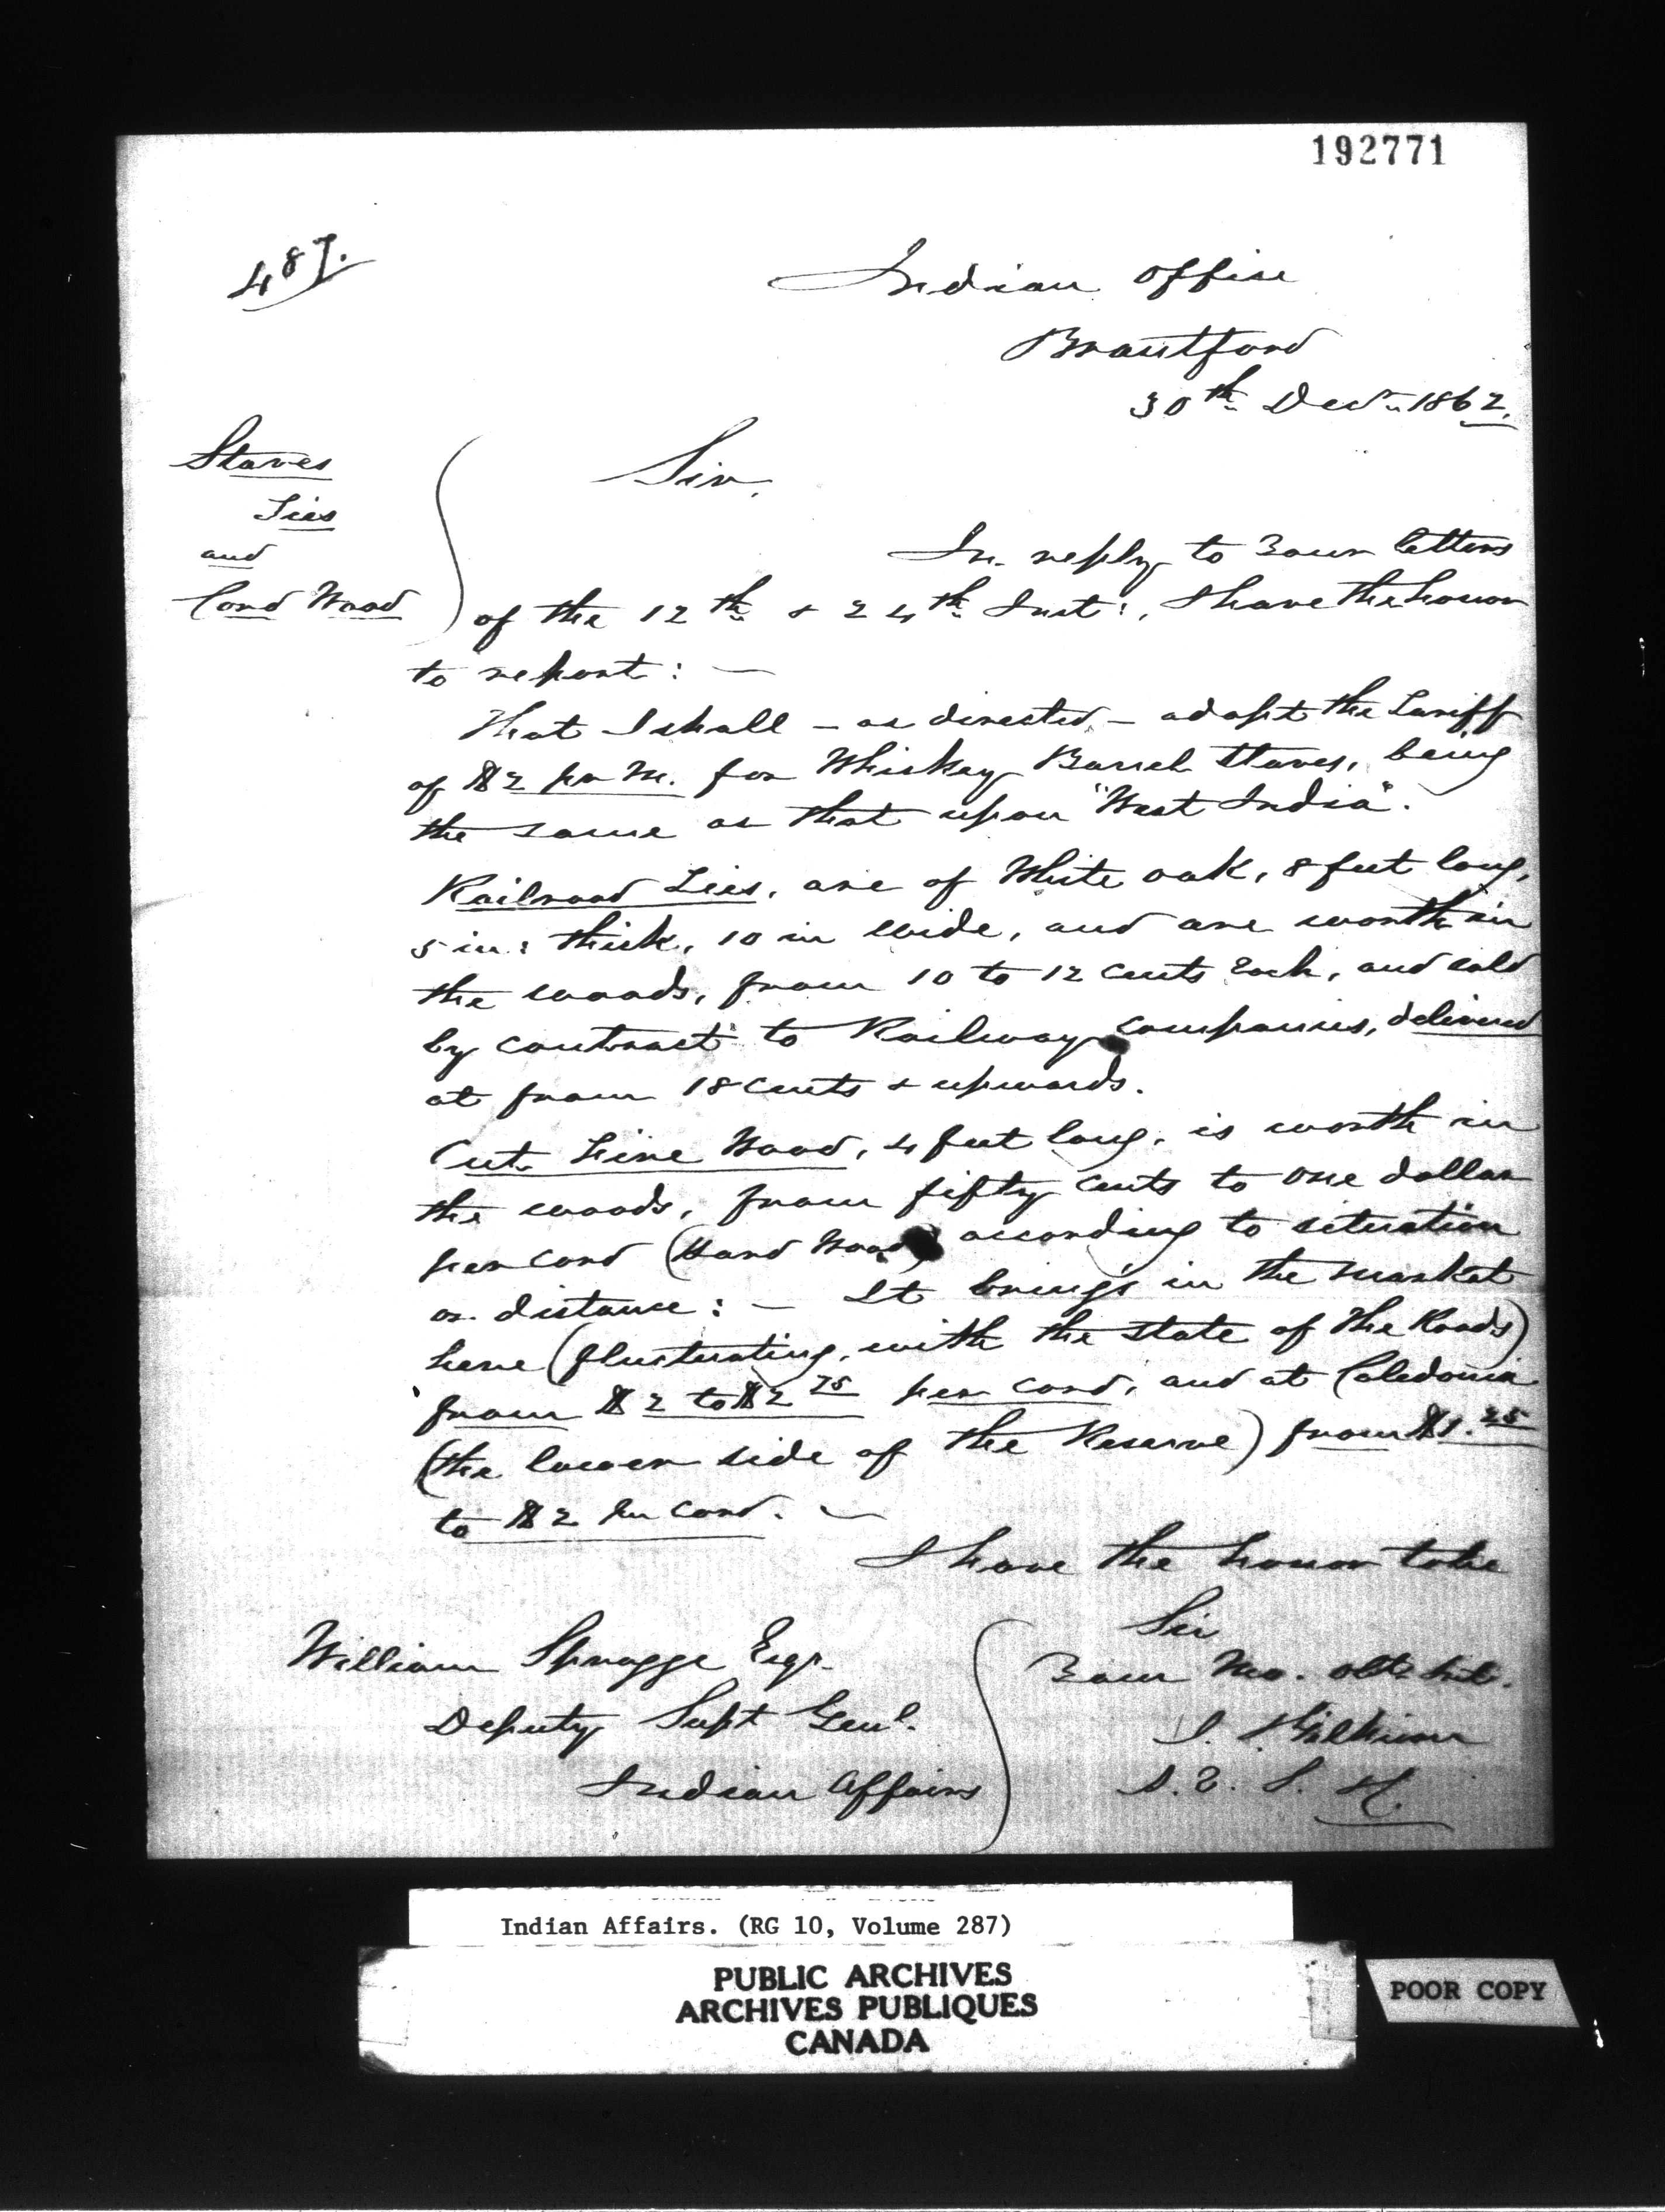 192771
487.
Indian Office
Brantford
30th Decr 1862.
Staves
Ties
and
Cord Wood
Sir,
In reply to Your letters
of the 12th & 24th Inst:, I have the honor
to report: —
That I shall – as directed – adopt the Tariff
of $2 per M. for Whiskey Barrel Staves, being
the same as that upon "West India".
Railroad Ties, are of White oak, 8 feet long,
5 in: thick, 10 in wide, and are worth in
the woods, from 10 to 12 cents each, and sold
by contract to Railway Companies, delivered
at from 18 cents & upwards.
Cut Fire Wood, 4 feet long, is worth in
the woods, from fifty cents to one dollar
per cord (Hard Wood) according to situation
or distance: — It brings in the market
here (fluctuating, with the state of the Roads)
from $2 to $2 25 per cord, and at Caledonia
(the lower side of the Reserve) from $1.25
to $2 per cord. —
I have the honor to be
Sir
Your Mo. obt Svt.
J. Gilkison
S. T. S. I.
William Spragge Esqr.
Deputy Supt Genl.
Indian Affairs
Indian Affairs. (RG 10, Volume 287)
PUBLIC ARCHIVES
ARCHIVES PUBLIQUES
CANADA
POOR COPY